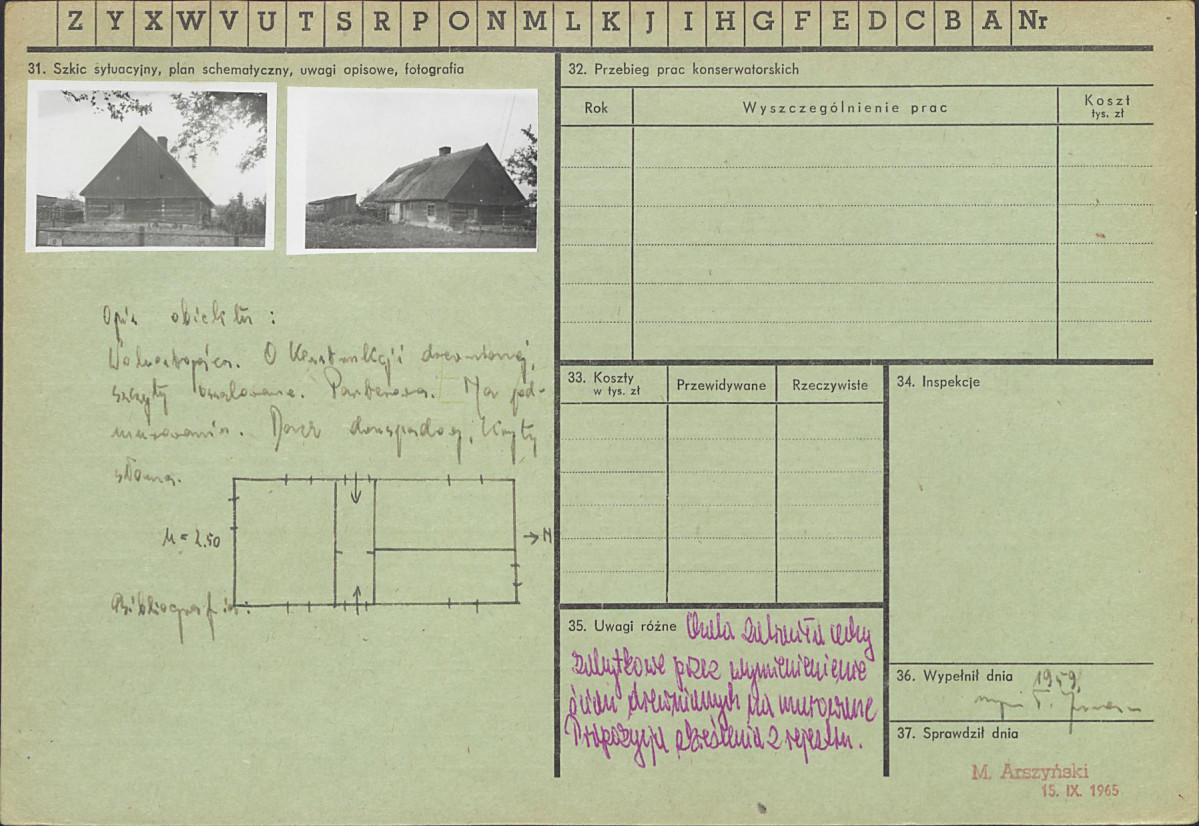 Z Y X W V U T S R P O N M L K J I H G F E D C B A Nr
31. Szkic sytuacyjny, plan schematyczny, uwagi opisowe, fotografia
Opis obiektu :
Wolnostojąca. O konstrukcji drewnianej,
szczyty oszalowane. Parterowa. Na pod-
murowaniu. Dach dwuspadowy, kryty
słomą.
M = 2.50
N
Bibliografia :
32. Przebieg prac konserwatorskich
Rok Wyszczególnienie prac Koszt
tys. zł
33. Koszty
w tys. zł
Przewidywane Rzeczywiste
34. Inspekcje
35. Uwagi różne Chata zatraciła cechy
zabytkowe przez wymienienienie
ścian drewnianych na murowane
Propozycja skreślenia z rejestru.
36. Wypełnił dnia 1959.
mgr T.
37. Sprawdził dnia
M. Arszyński
15. IX. 1965